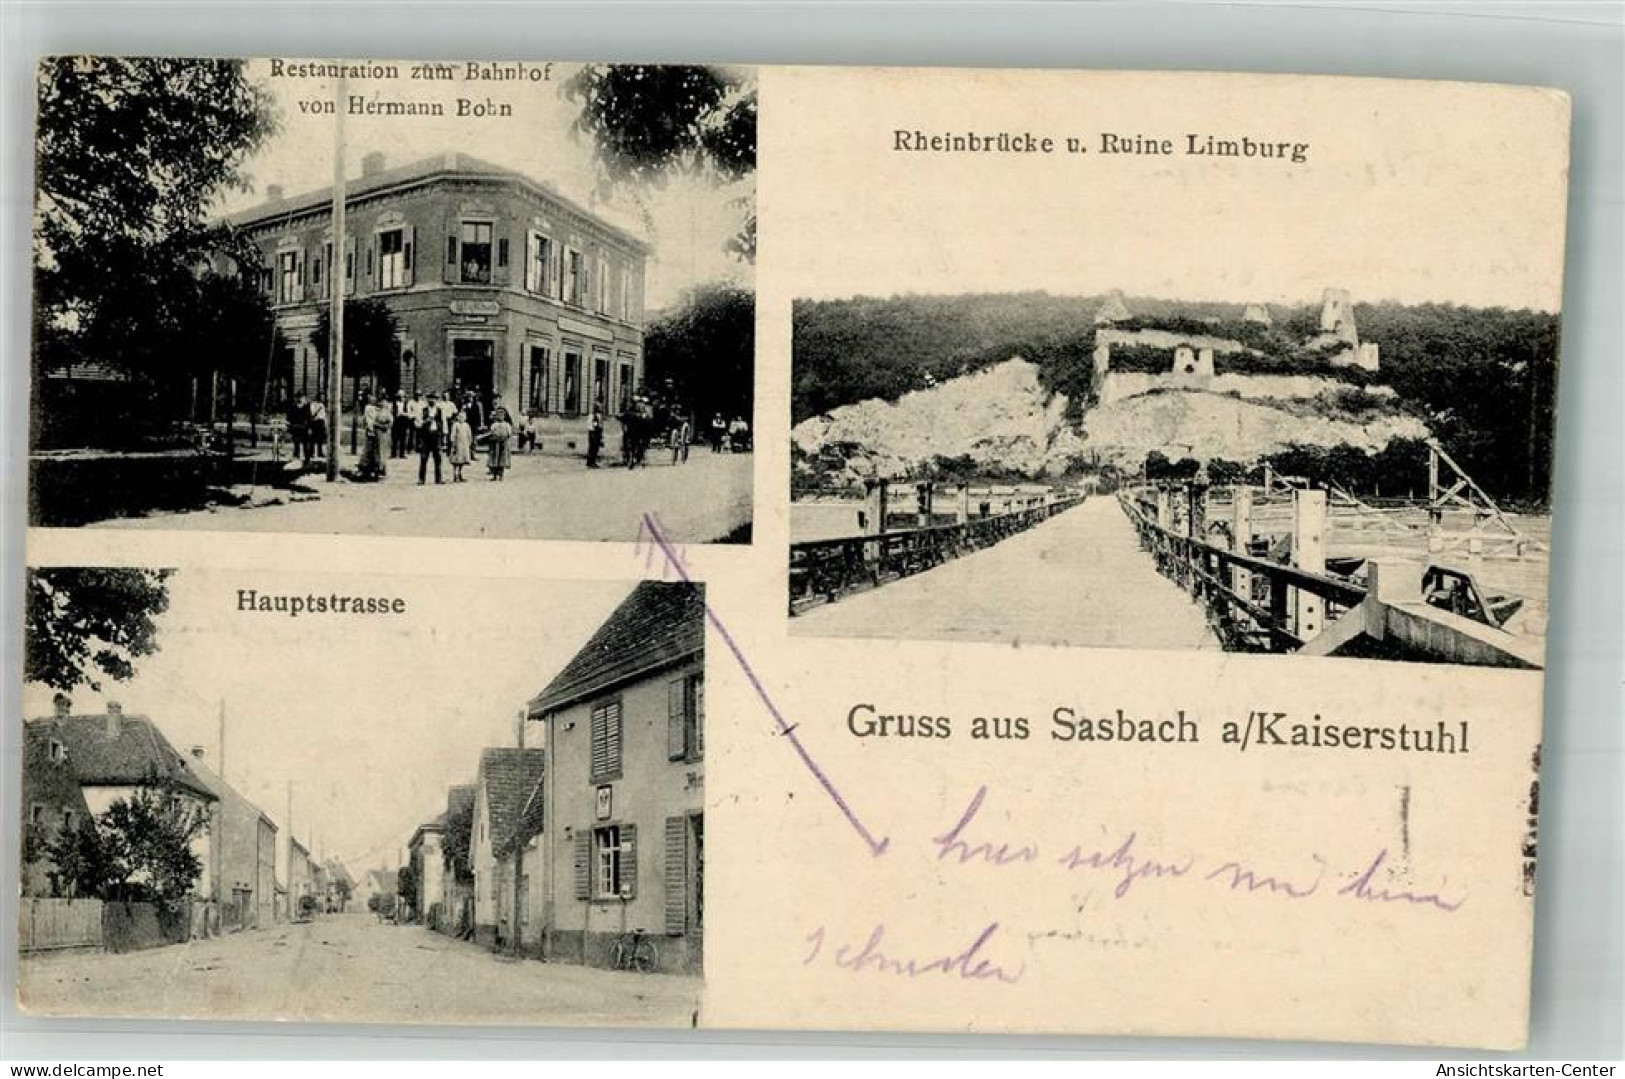 Restauration zum Bahnhof
von Hermann Bohn
Rheinbrücke u. Ruine Limburg
Hauptstrasse
Gruss aus Sasbach a/Kaiserstuhl
hier sitzen wir beim
www.delcampe.net
Ansichtskarten-Center